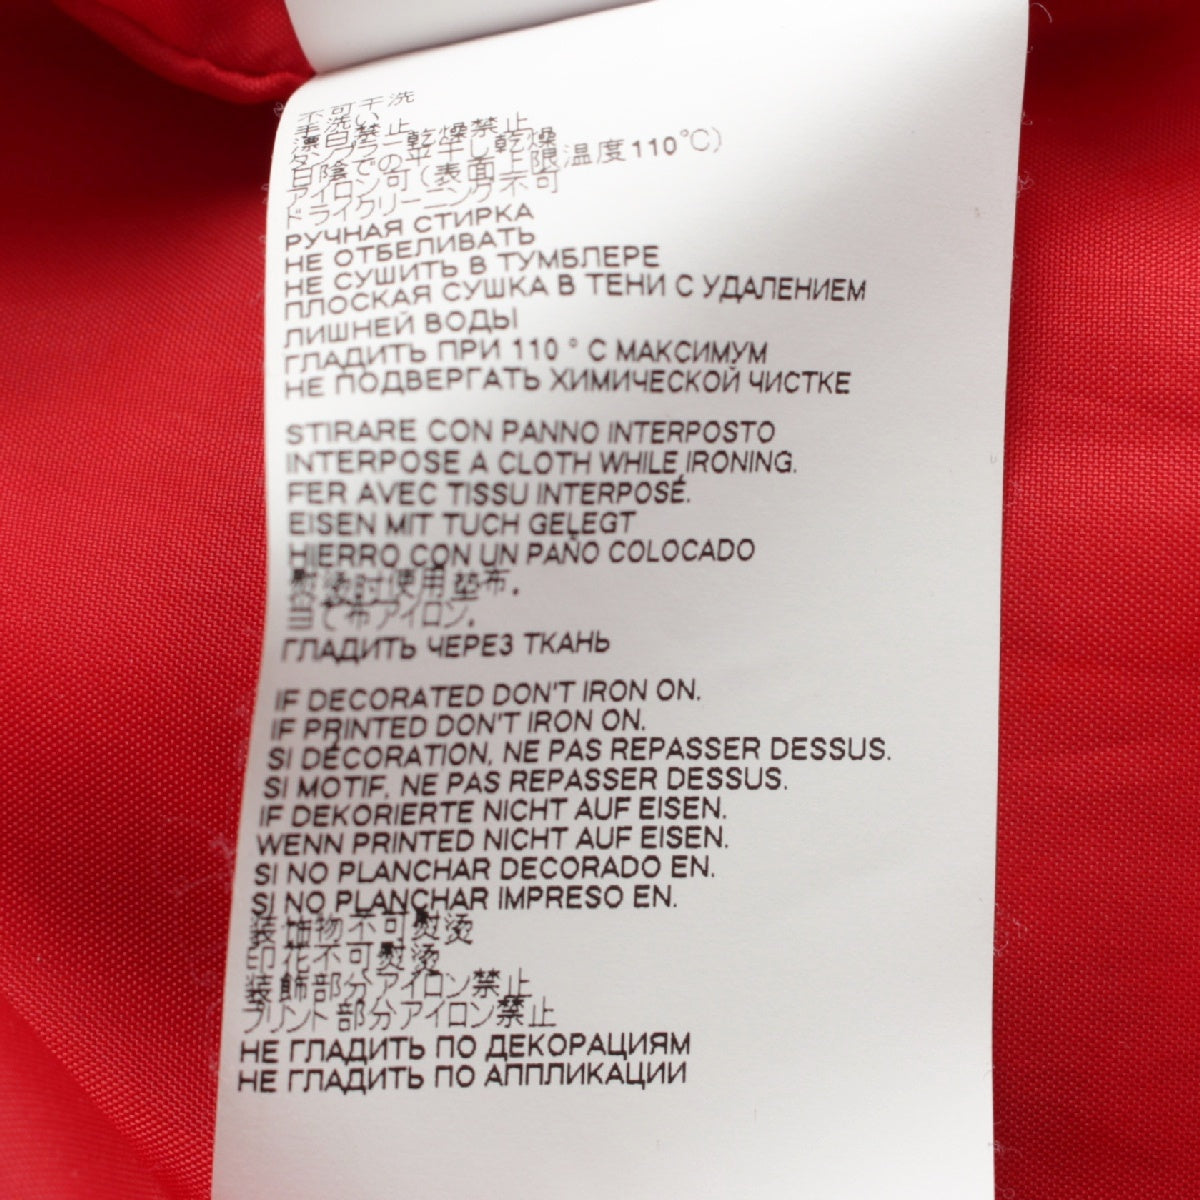 不可干洗
手洗い
漂白禁止
タンブラー乾燥禁止
日陰での平干し乾燥
アイロン可(表面上限温度110°C)
ドライクリーニング不可
РУЧНАЯ СТИРКА
НЕ ОТБЕЛИВАТЬ
НЕ СУШИТЬ В ТУМБЛЕРЕ
ПЛОСКАЯ СУШКА В ТЕНИ С УДАЛЕНИЕМ
ЛИШНЕЙ ВОДЫ
ГЛАДИТЬ ПРИ 110 ° С МАКСИМУМ
НЕ ПОДВЕРГАТЬ ХИМИЧЕСКОЙ ЧИСТКЕ
STIRARE CON PANNO INTERPOSTO
INTERPOSE A CLOTH WHILE IRONING.
FER AVEC TISSU INTERPOSÉ.
EISEN MIT TUCH GELEGT
HIERRO CON UN PAÑO COLOCADO
熨烫时使用垫布.
当て布アイロン.
ГЛАДИТЬ ЧЕРЕЗ ТКАНЬ
IF DECORATED DON'T IRON ON.
IF PRINTED DON'T IRON ON.
SI DÉCORATION, NE PAS REPASSER DESSUS.
SI MOTIF, NE PAS REPASSER DESSUS.
IF DEKORIERTE NICHT AUF EISEN.
WENN PRINTED NICHT AUF EISEN.
SI NO PLANCHAR DECORADO EN.
SI NO PLANCHAR IMPRESO EN.
装饰物不可熨烫
印花不可熨烫
装飾部分アイロン禁止
プリント部分アイロン禁止
НЕ ГЛАДИТЬ ПО ДЕКОРАЦИЯМ
НЕ ГЛАДИТЬ ПО АППЛИКАЦИИ